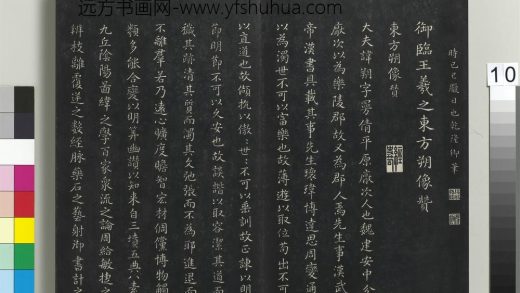 远方书画网-www.yfshuhua.com
10
時己巳臘日也乾隆御筆
御臨王羲之東方朔像贊
東方朔像贊
大夫諱朔字曼倩平原厭次人也魏建安中分
厭次以為樂陵郡故又為郡人焉先生事漢武
帝漢書具載其事先生瓌瑋博達思周變通
以為濁世不可以富樂也故薄遊以取位苟出不可
以直道也故傾抗以傲〻世〻不可以垂訓故正諫以明
節明節不可以久安也故詼諧以取容潔其道而
穢其跡清其質而濁其文弛張而不為耶進退而
不離羣若乃遠心曠度贍智宏材倜儻博物觸
類多能合變以明筭幽讚以知來自三墳五典八素
九丘陰陽圖緯之學百家衆流之論周給敏捷之
辯枝離覆逆之數經脉藥石之藝射御書計之